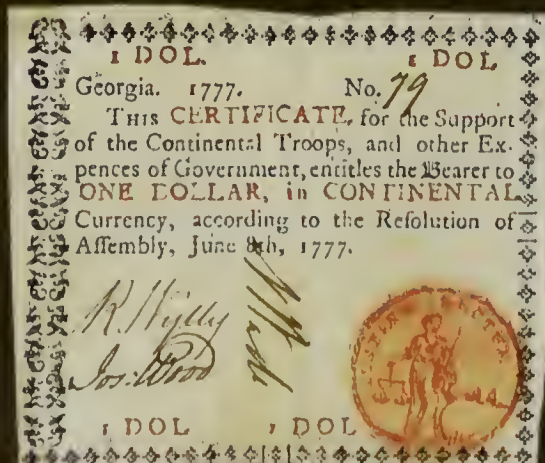 1 DOL. 1 DOL
Georgia. 1777. No. 79
THIS CERTIFICATE, for the Support
of the Continental Troops, and other Ex-
pences of Government, entitles the Bearer to
ONE DOLLAR, in CONTINENTAL
Currency, according to the Reſolution of
Aſſembly, June 8th, 1777.
R. Wylly
Jos: Wood
1 DOL 1 DOL